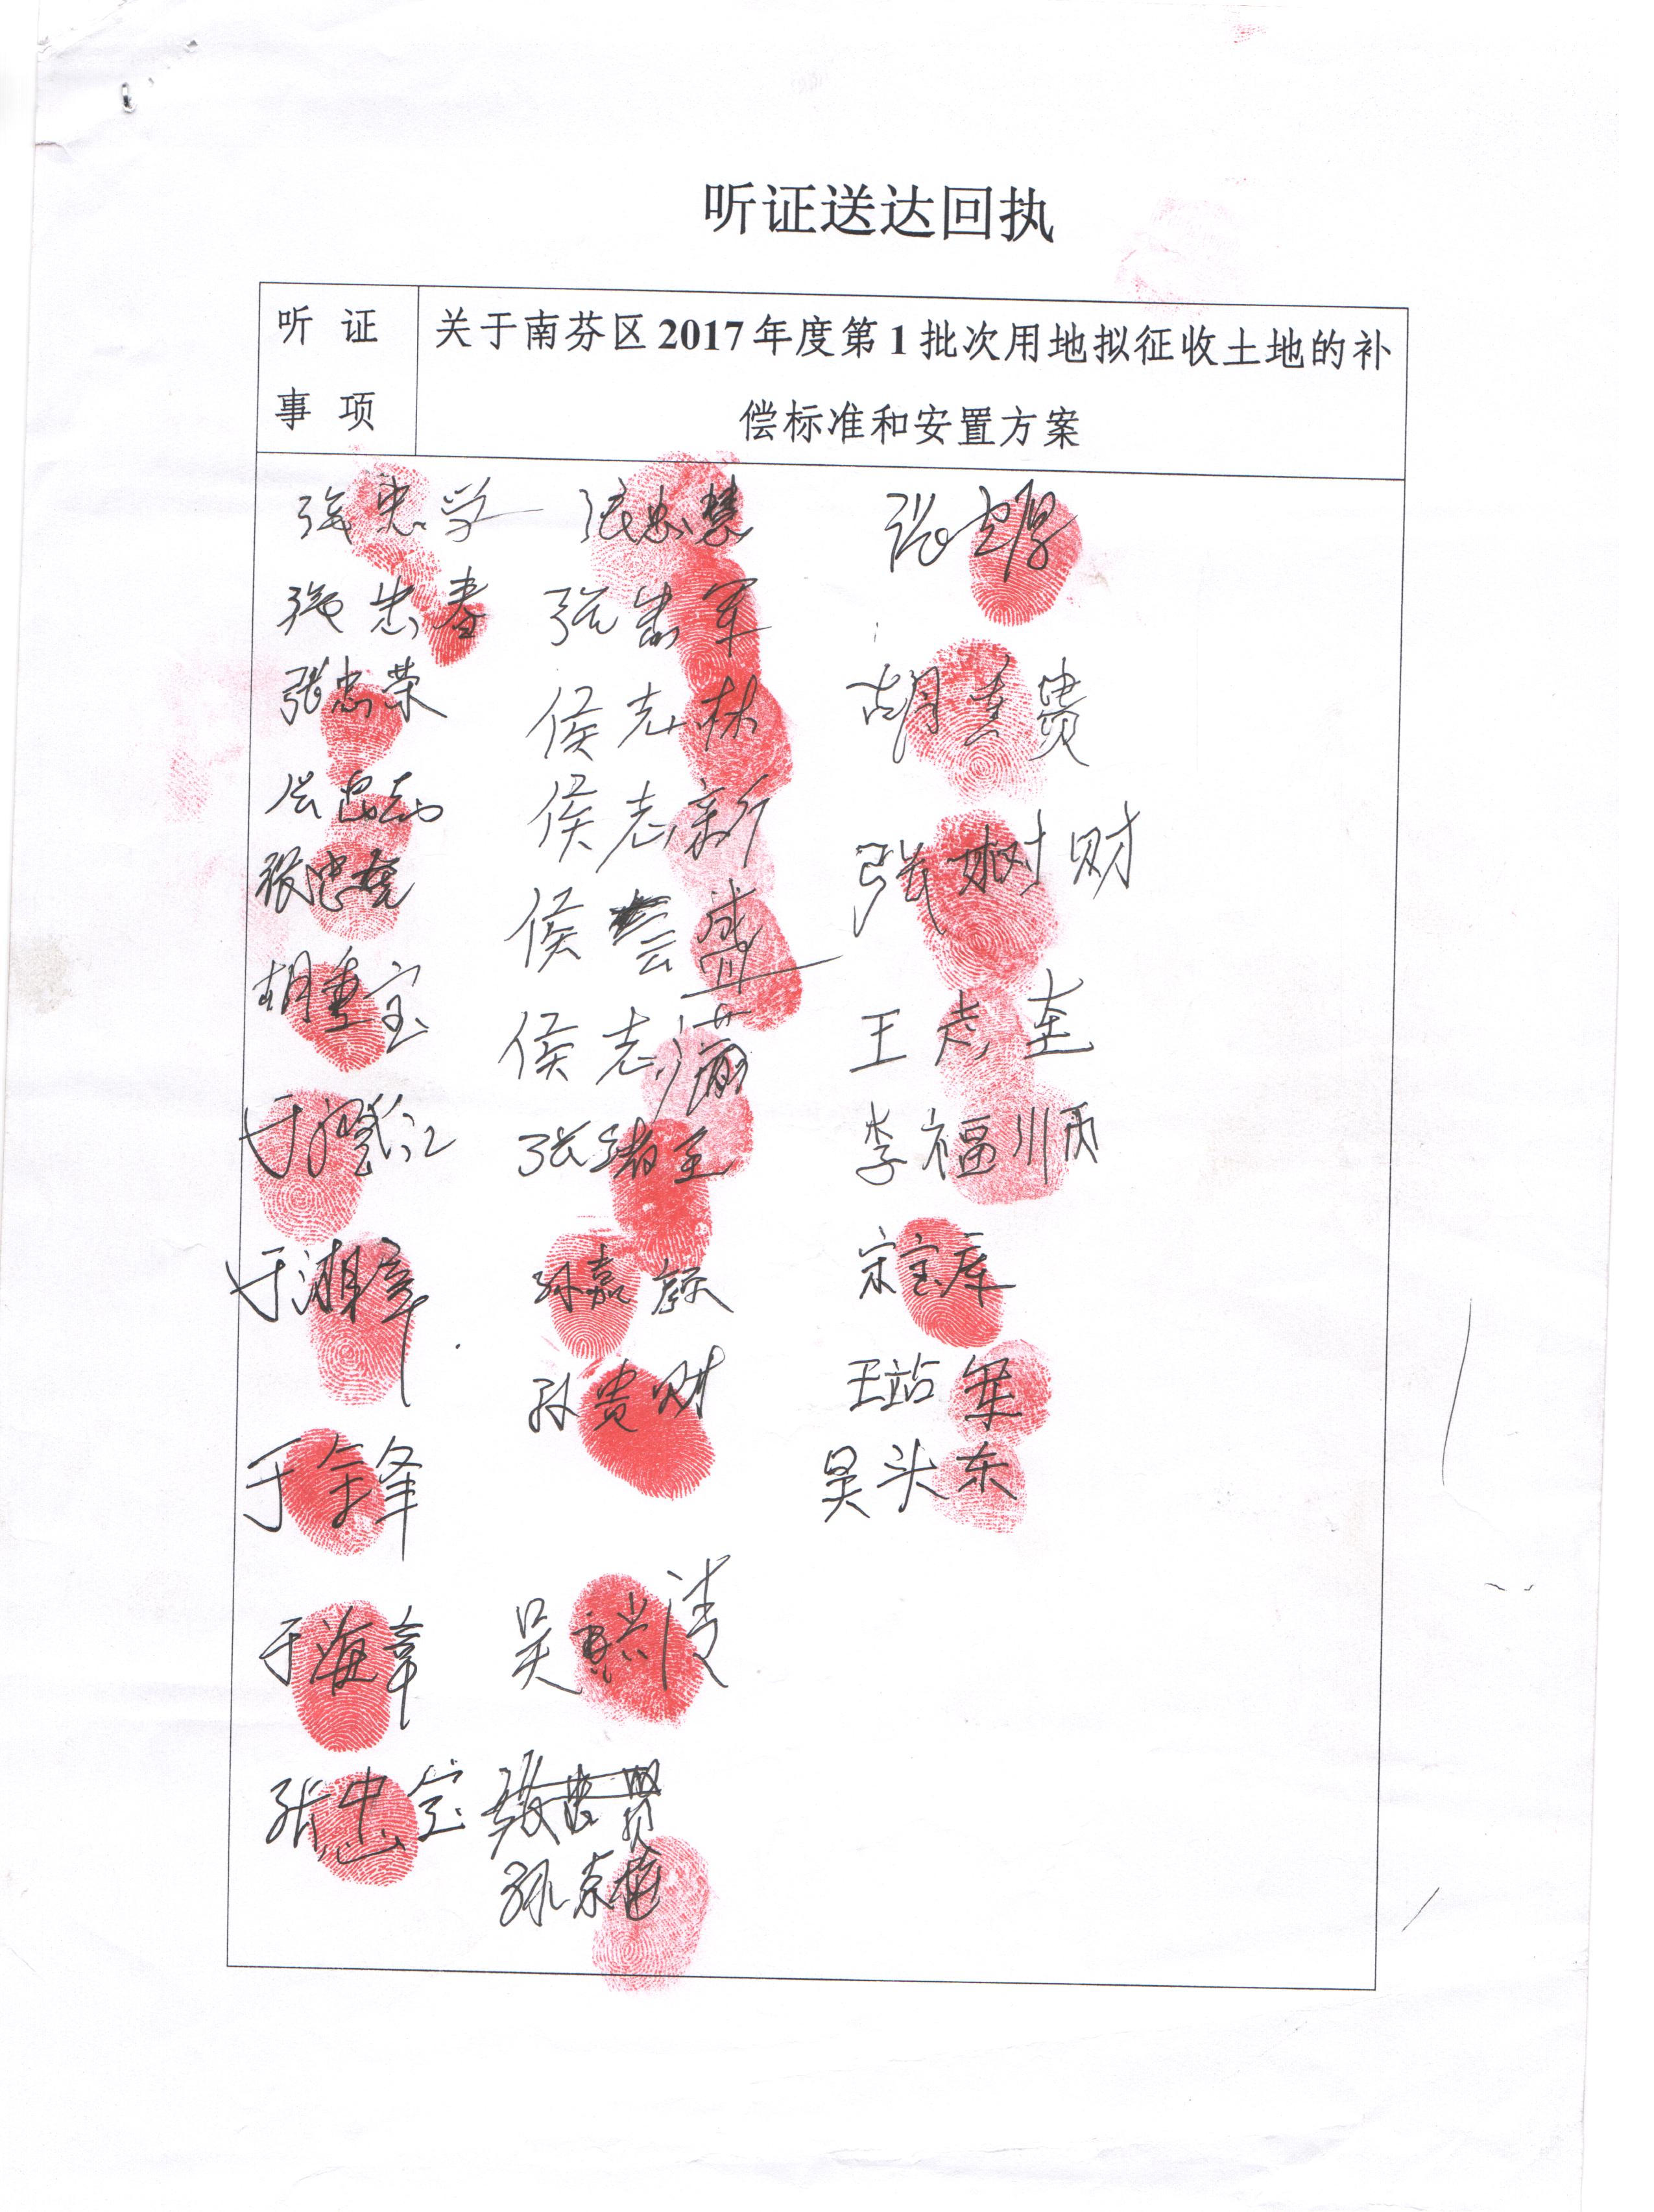 听证送达回执
听 证
事 项
关于南芬区 2017 年度第 1 批次用地拟征收土地的补
偿标准和安置方案
张忠学 张忠慧
张忠春 张忠军
张忠荣 侯志林 胡贵
侯志新 张树财
张忠 侯云盛 王志
胡宝 侯志满 李福顺
于江 张绪 宋宝库
于湘 孙嘉 王站军
于金锋 孙贵财 吴头东
于海章 吴清
张忠宝 张忠贤
孙